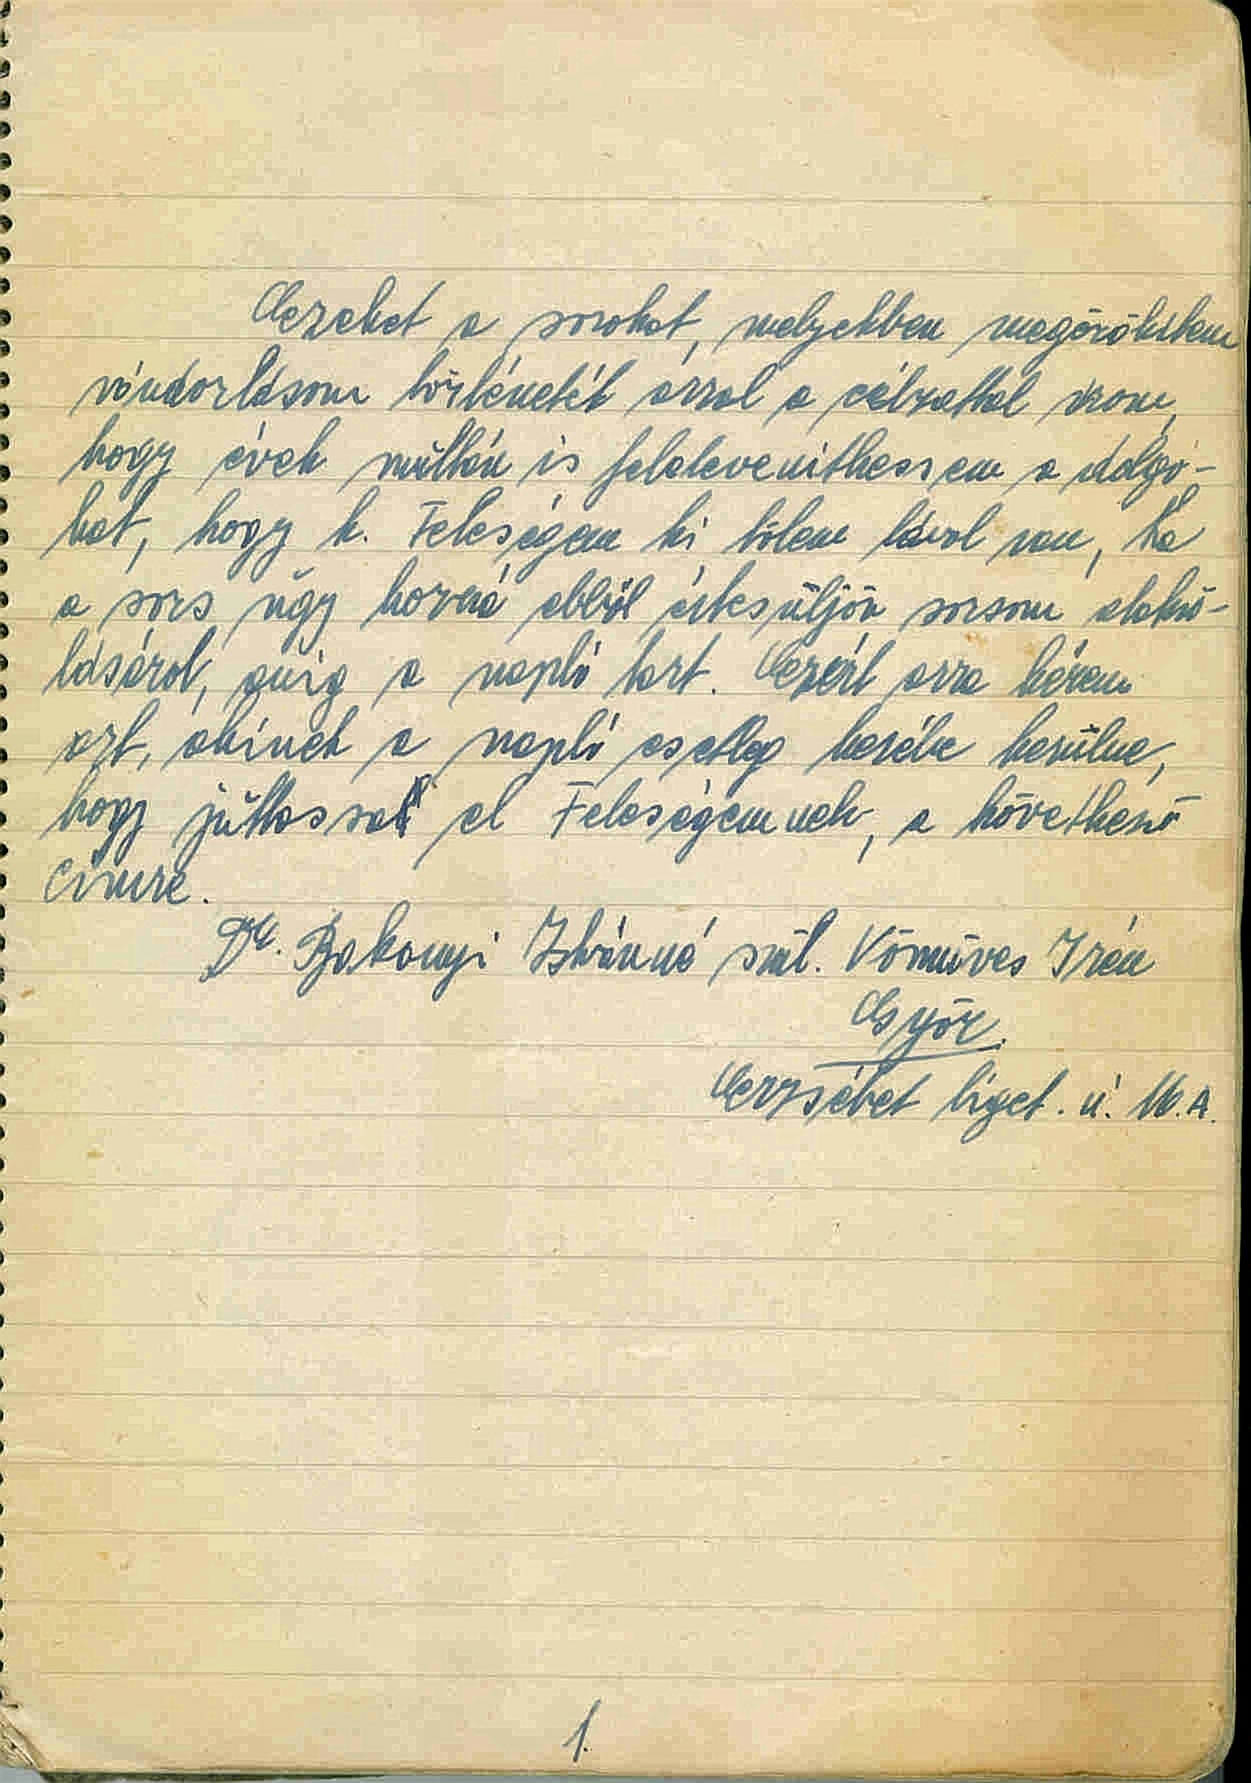 Ezeket a sorokat, melyekben megörökitem
vándorlásom történetét azzal a célzattal irom,
hogy évek multán is feleleveníthessem a dolgo-
kat, hogy k. Feleségem ki tőlem távol van, ha
a sors úgy hozná ebből értesüljön sorsom alaku-
lásáról, amig a napló tart. Ezért arra kérem
azt, akinek a napló esetleg kezébe kerülne,
hogy juttassa el Feleségemnek, a következő
címre.
Dr. Bakonyi Istvánné szül. Kőműves Irén
Győr.
Erzsébet liget. ú. 16.A.
1.